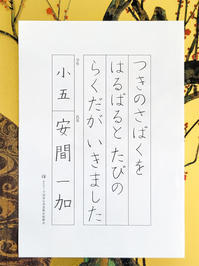 つきのさばくを
はるばると たびの
らくだが いきました
小五 安間 一加